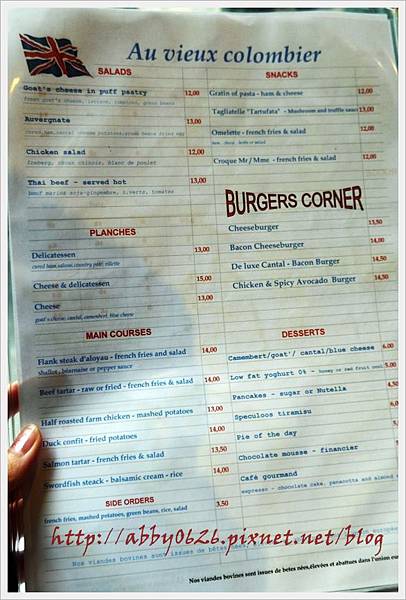 Au vieux colombier
SALADS
Goat's cheese in puff pastry 12,00
fresh goat's cheese, lettuce, green beans
Auvergnate 13,00
Chicken salad 12,00
Iceberg, choux chinois, blanc de poulet
Thai beef - served hot 13,00
boeuf mariné soja-gingembre, H.verts, tomates
SNACKS
Gratin of pasta - ham & cheese 12,00
Tagliatelle "Tartufata" - Mushroom and truffle sauce 13,00
Omelette - french fries & salad 12,00
Croque Mr / Mme - french fries & salad 12,00
BURGERS CORNER
Cheeseburger 13,50
Bacon Cheeseburger 14,00
De luxe Cantal - Bacon Burger 14,50
Chicken & Spicy Avocado Burger 14,50
PLANCHES
Delicatessen 13,00
cured ham, salami, country pâté, rillette
Cheese & delicatessen 15,00
Cheese 13,00
goat's cheese, cantal, camembert, blue cheese
MAIN COURSES
Flank steak d'aloyau - french fries and salad 14,00
shallot - béarnaise or pepper sauce
Beef tartar - raw or fried - french fries & salad 14,00
Half roasted farm chicken - mashed potatoes 13,00
Duck confit - fried potatoes 14,00
Salmon tartar - french fries & salad 13,50
Swordfish steack - balsamic cream - rice 14,00
SIDE ORDERS
french fries, mashed potatoes, green beans, rice, salad 3,50
DESSERTS
Camembert/goat'/ cantal/blue cheese 6,00
Low fat yoghurt 0% - honey or red fruit
Pancakes - sugar or Nutella
Speculoos tiramisu
Pie of the day
Chocolate mousse - financier
Café gourmand
espresso - chocolate cake, panacotta and almond
http://abby0626.pixnet.net/blog
Nos viandes bovines sont issues de bêtes nées,
Nos viandes bovines sont issues de bêtes nées,élevées et abattues dans l'union